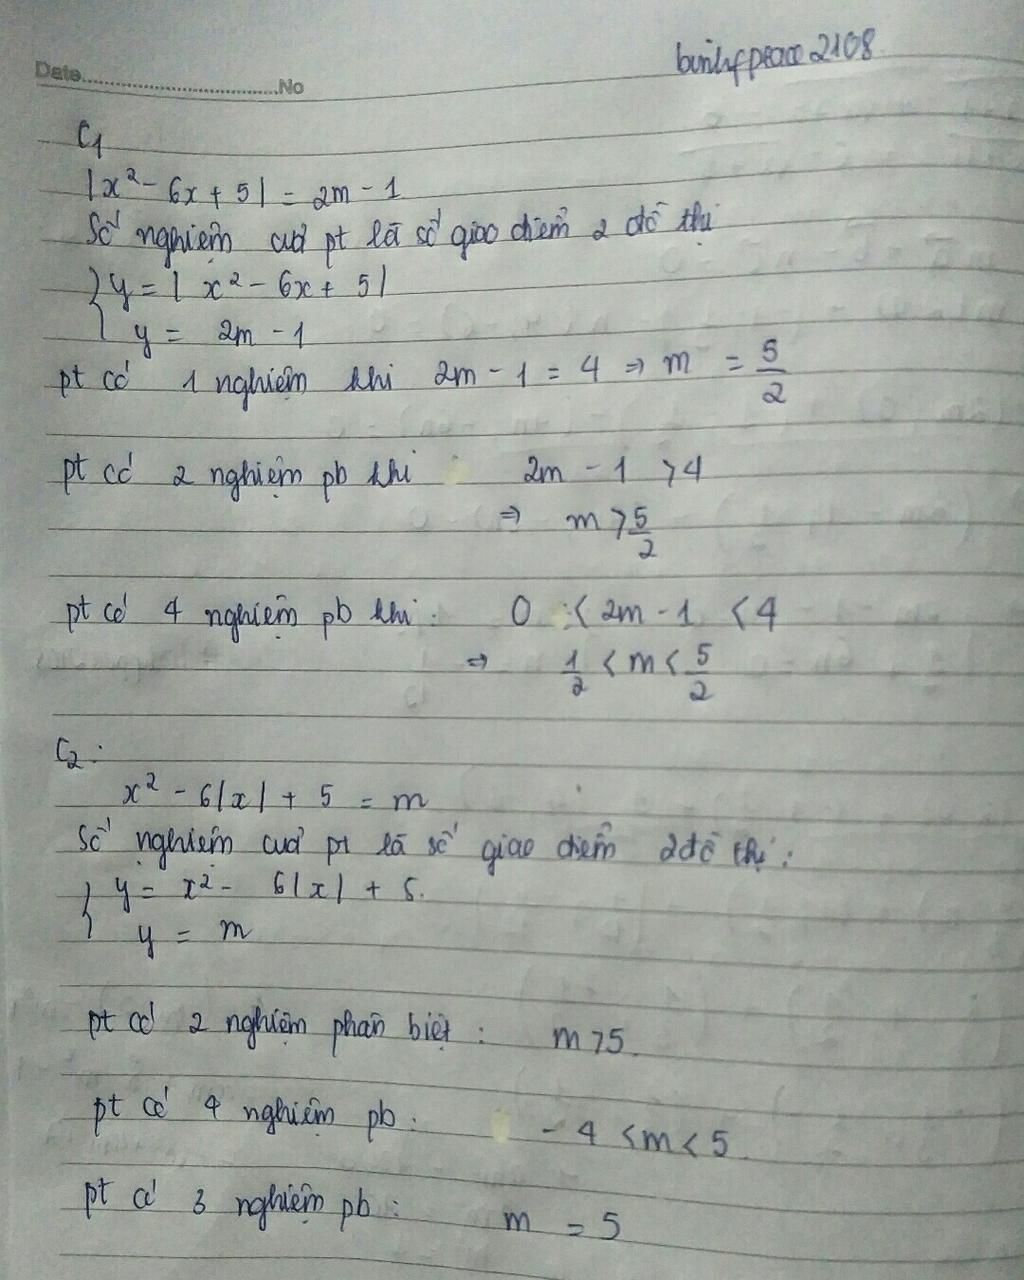 Date..............................No
binhfpeace2108
C1
|x² - 6x + 5| = 2m - 1
Số nghiệm cuả pt là số giao điểm 2 đồ thị
{ y = | x² - 6x + 5|
y = 2m - 1
pt có 1 nghiệm khi 2m - 1 = 4 ⇒ m = 5/2
pt có 2 nghiệm pb khi 2m - 1 > 4
⇒ m > 5/2
pt có 4 nghiệm pb khi : 0 < 2m - 1 < 4
⇒ 1/2 < m < 5/2
C2 :
x² - 6|x| + 5 = m
Số nghiệm cuả pt là số giao điểm 2 đồ thị :
{ y = x² - 6|x| + 5.
y = m
pt có 2 nghiệm phân biệt : m > 5.
pt có 4 nghiệm pb : - 4 < m < 5
pt có 3 nghiệm pb : m = 5